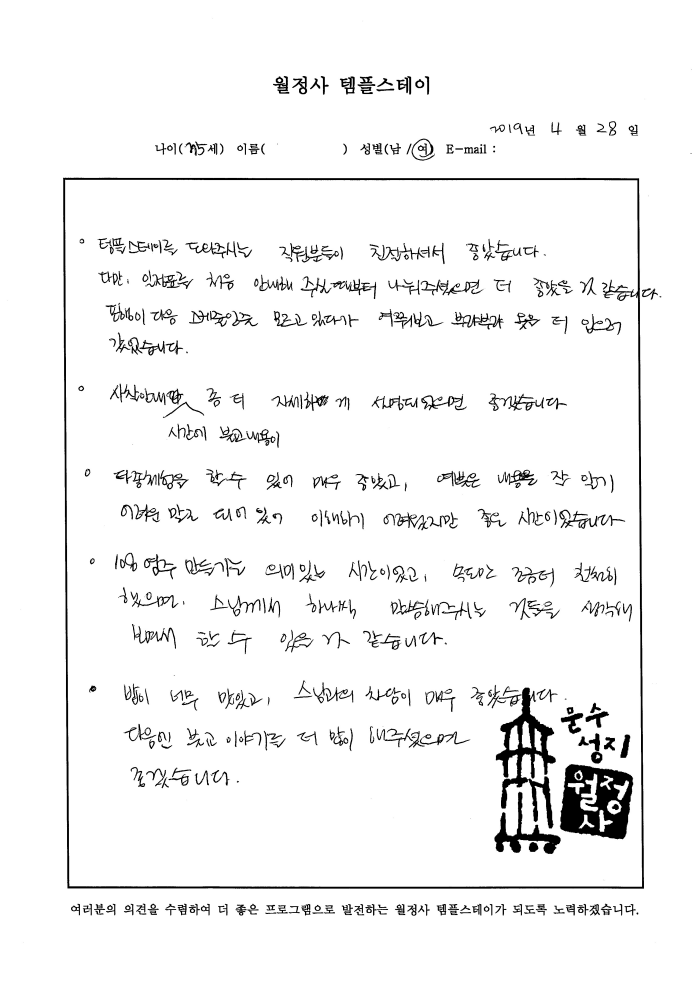 월정사 템플스테이
2019년 4 월 28 일
나이( 세) 이름( ) 성별(남 / 여) E-mail :
템플스테이를 도와주시는 직원분들이 친절하셔서 좋았습니다.
다만, 일정표를 처음 안내해 주실때부터 나눠주셨으면 더 좋았을 것 같습니다.
다음 스케줄인줄 모르고 있다가 여쭤보고 부랴부랴 옷을 더 입으러
갔었습니다.
사찰안내 좀 더 자세하게 설명되었으면 좋겠습니다
시간에 불교내용이
타종체험을 할 수 있어 매우 좋았고, 예불은 내용을 잘 알기
어려운 말로 되어 있어 이해하기 어려웠지만 좋은 시간이었습니다
108 염주 만들기는 의미있는 시간이었고, 속도만 조금더 천천히
했으면, 스님께서 하나씩 말씀해주시는 것들을 생각해
보면서 할 수 있을 것 같습니다.
밥이 너무 맛있고, 스님과의 차담이 매우 좋았습니다.
다음엔 불교 이야기를 더 많이 해주셨으면
좋겠습니다.
문수
성지
월정
사
여러분의 의견을 수렴하여 더 좋은 프로그램으로 발전하는 월정사 템플스테이가 되도록 노력하겠습니다.